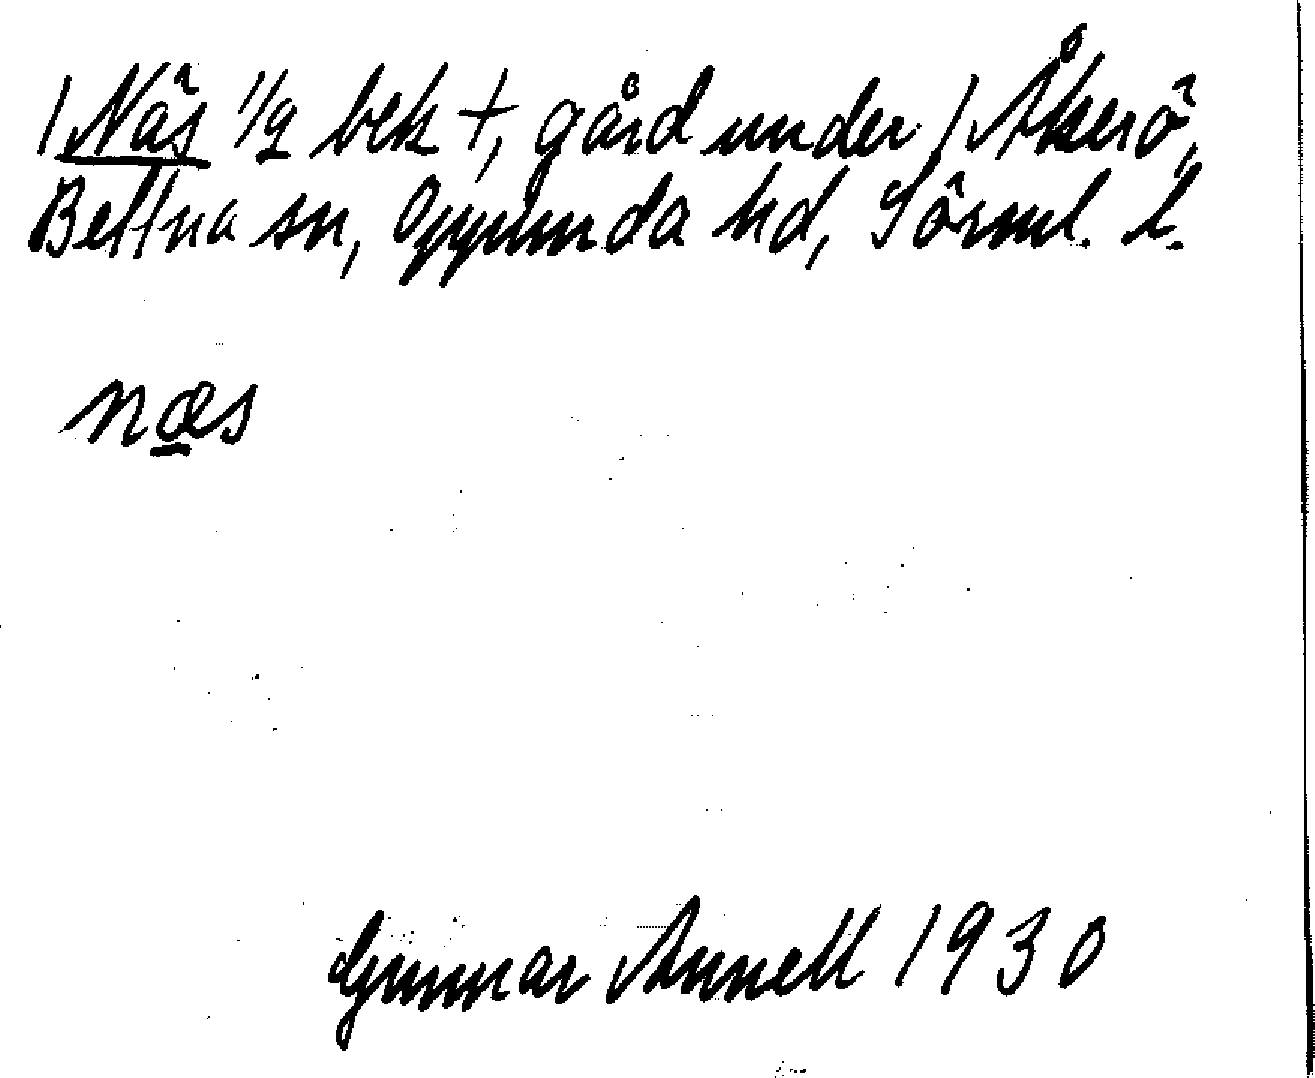 / Näs 1/2 bek +, gård under / Åkerö,
Bettna sn, Oppunda hd, Sörml. l.
næs
Gunnar Annell 1930